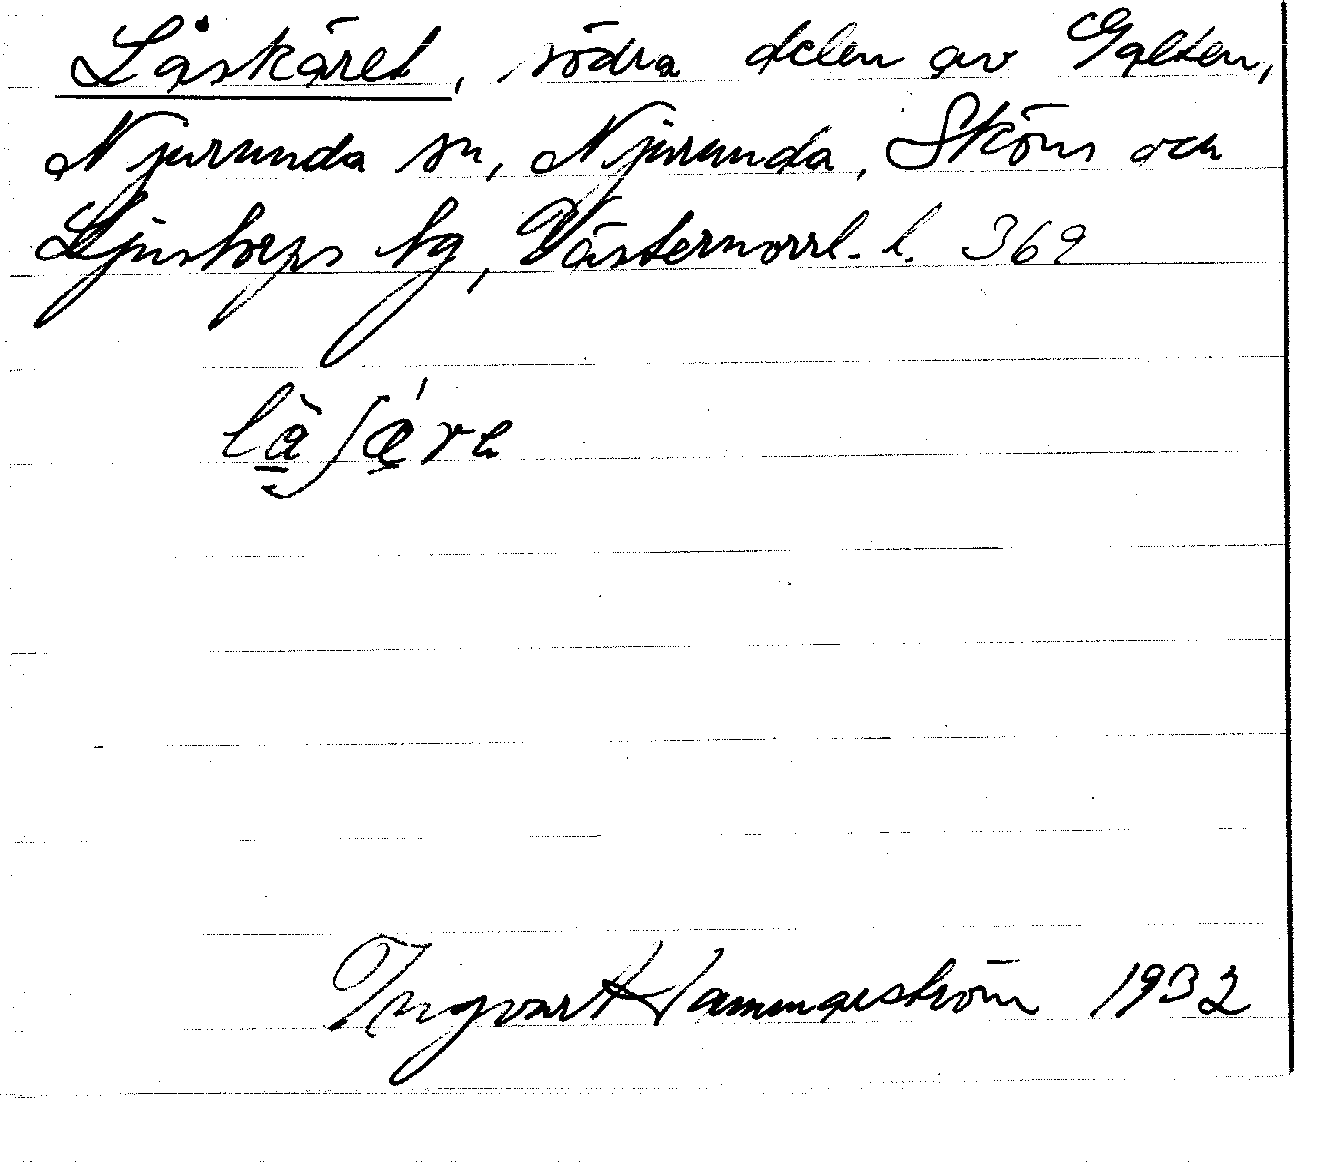 Låskäret, södra delen av Galten,
Njurunda sn, Njurunda, Sköns och
Ljustorps tg, Västernorrl. l. 369
Ingvar Hammarström 1932